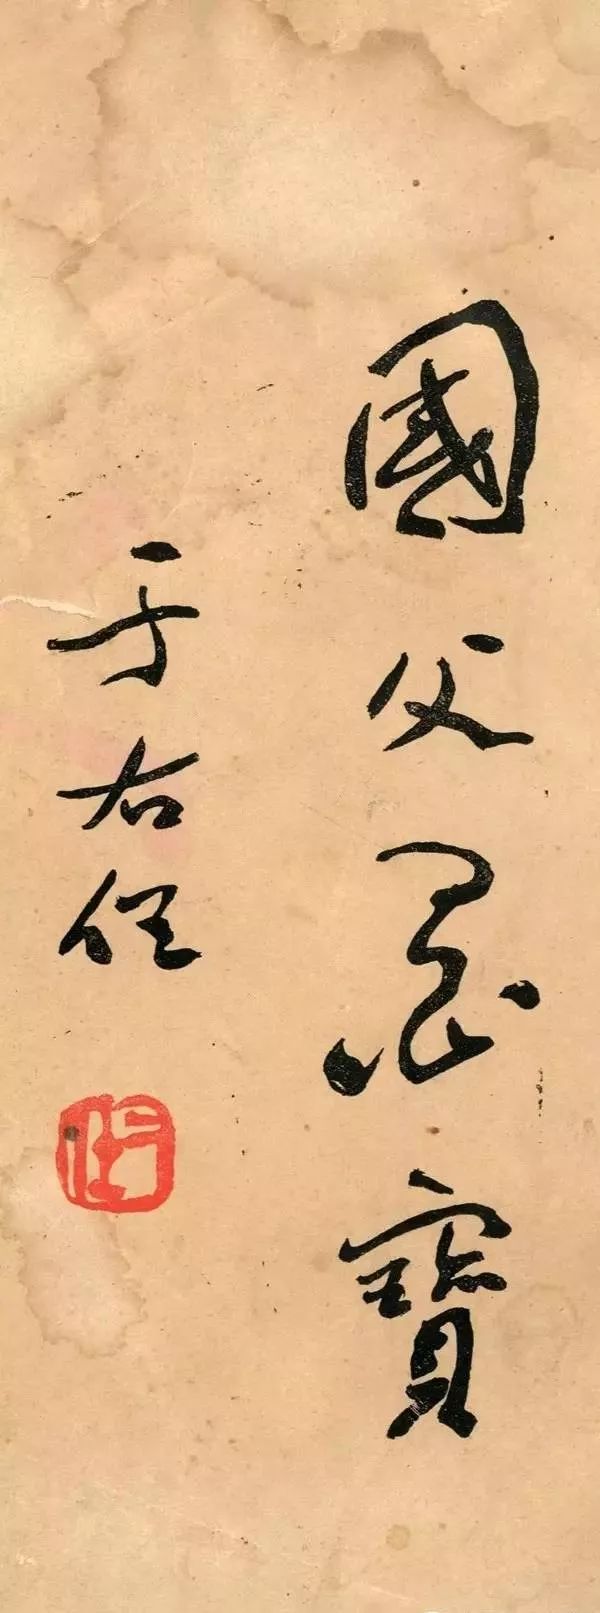 國父墨寶
于右任